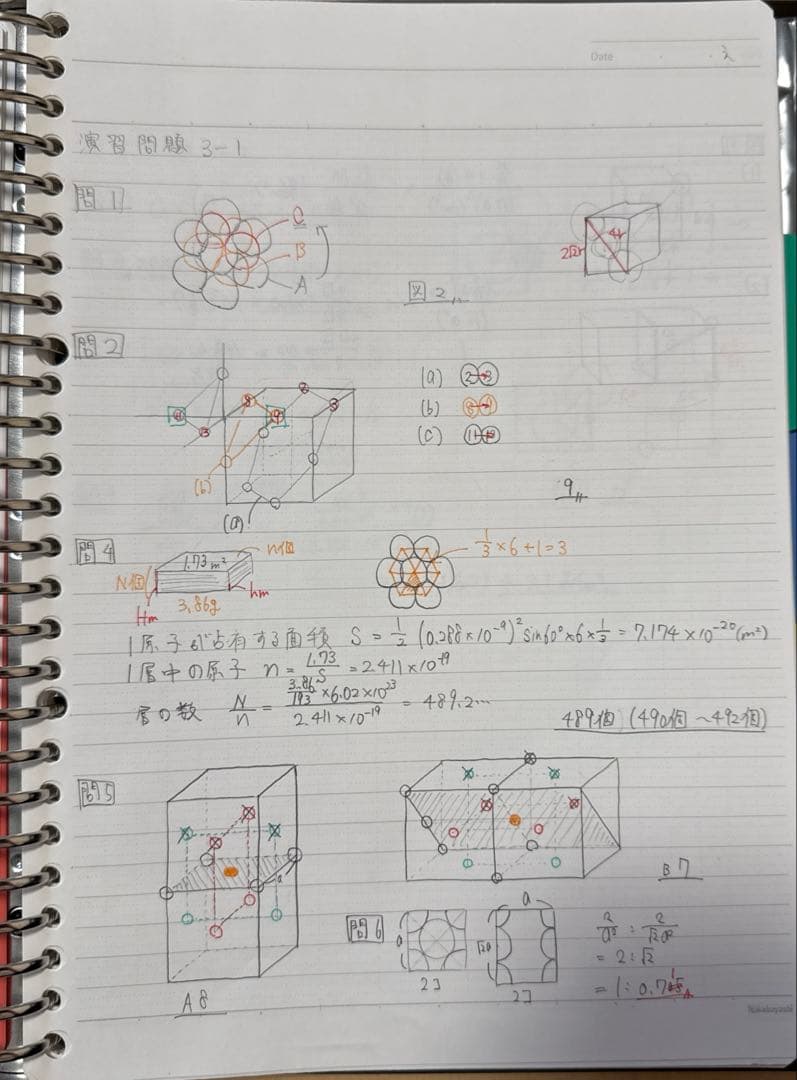 Date
演習問題 3-1
問1
C
B
A
2√2r
4r
図2〃
問2
8
9
2
3
(b)
(a)
(a) ②→③
(b) ⑧→⑨
(c)
9〃
問4
1.73m²
n個
N個
Hm
3.86g
hm
1/3×6+1=3
1原子が占有する面積 S = 1/2 (0.288×10⁻⁹)² sin60°×6×1/3 = 7.174×10⁻²⁰(m²)
1層中の原子 n = 1.73/S = 2.411×10⁻¹⁹
層の数 N/n = (3.86/193 ×6.02×10²³)/(2.411×10⁻¹⁹) = 489.2…
489個 (490個~492個)
問5
a
A8
B7
問6
a
2コ
a
√2a
2コ
2/a² : 2/√2a²
= 2:√2